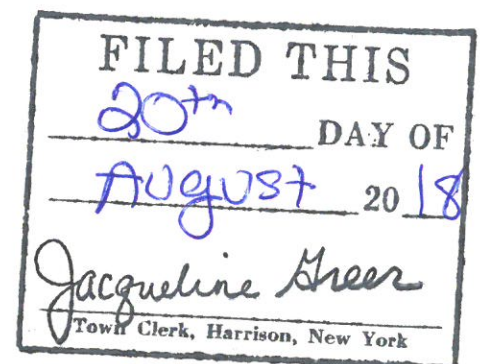 FILED THIS
20th DAY OF
AUgUST 20 18
Jacqueline Greer
Town Clerk, Harrison, New York